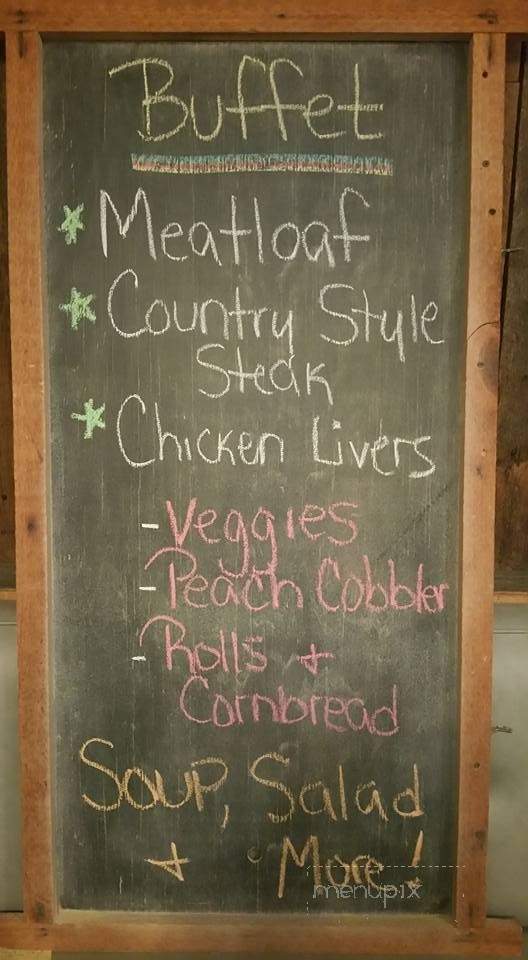 Buffet
* Meatloaf
* Country Style
Steak
* Chicken Livers
- Veggies
- Peach Cobbler
- Rolls +
Cornbread
Soup, Salad
+ More!
menupix